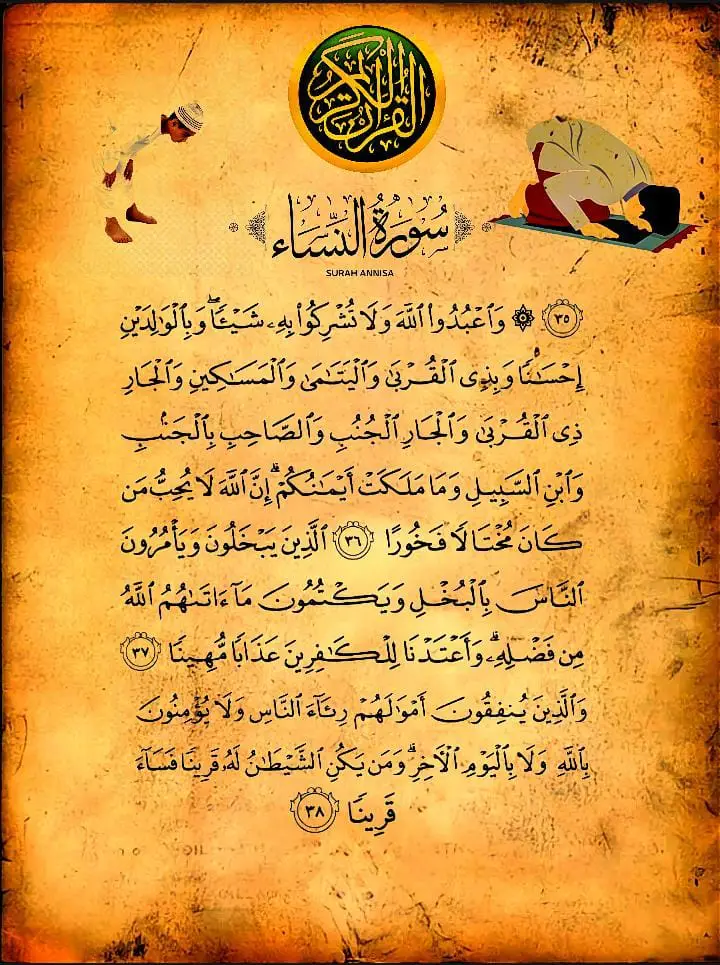 القرآن الكريم
سُورَةُ النِّسَاء
SURAH ANNISA
٣٥ ۞ وَٱعْبُدُوا۟ ٱللَّهَ وَلَا تُشْرِكُوا۟ بِهِۦ شَيْـًٔا ۖ وَبِٱلْوَٰلِدَيْنِ
إِحْسَـٰنًا وَبِذِى ٱلْقُرْبَىٰ وَٱلْيَتَـٰمَىٰ وَٱلْمَسَـٰكِينِ وَٱلْجَارِ
ذِى ٱلْقُرْبَىٰ وَٱلْجَارِ ٱلْجُنُبِ وَٱلصَّاحِبِ بِٱلْجَنۢبِ
وَٱبْنِ ٱلسَّبِيلِ وَمَا مَلَكَتْ أَيْمَـٰنُكُمْ ۗ إِنَّ ٱللَّهَ لَا يُحِبُّ مَن
كَانَ مُخْتَالًا فَخُورًا ٣٦ ٱلَّذِينَ يَبْخَلُونَ وَيَأْمُرُونَ
ٱلنَّاسَ بِٱلْبُخْلِ وَيَكْتُمُونَ مَآ ءَاتَىٰهُمُ ٱللَّهُ
مِن فَضْلِهِۦ ۗ وَأَعْتَدْنَا لِلْكَـٰفِرِينَ عَذَابًا مُّهِينًا ٣٧
وَٱلَّذِينَ يُنفِقُونَ أَمْوَٰلَهُمْ رِئَآءَ ٱلنَّاسِ وَلَا يُؤْمِنُونَ
بِٱللَّهِ وَلَا بِٱلْيَوْمِ ٱلْـَٔاخِرِ ۗ وَمَن يَكُنِ ٱلشَّيْطَـٰنُ لَهُۥ قَرِينًا فَسَآءَ
قَرِينًا ٣٨